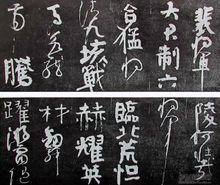 裴将軍
大君制六
合猛将
清九垓戰
馬若龍
虎騰
陵何壯哉
将軍
臨北荒恒
赫耀英
材劍舞
躍游電